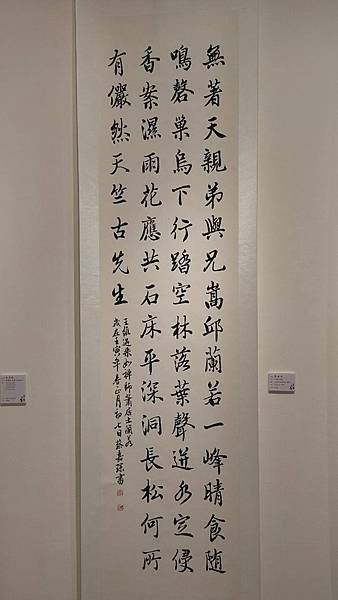 無著天親弟與兄嵩邱蘭若一峰晴食隨
鳴磬巢烏下行踏空林落葉聲迸水定侵
香案濕雨花應共石床平深洞長松何所
有儼然天竺古先生
王維過乘如禪師蕭居士蘭若
歲在壬寅年春正月初七日嘉書